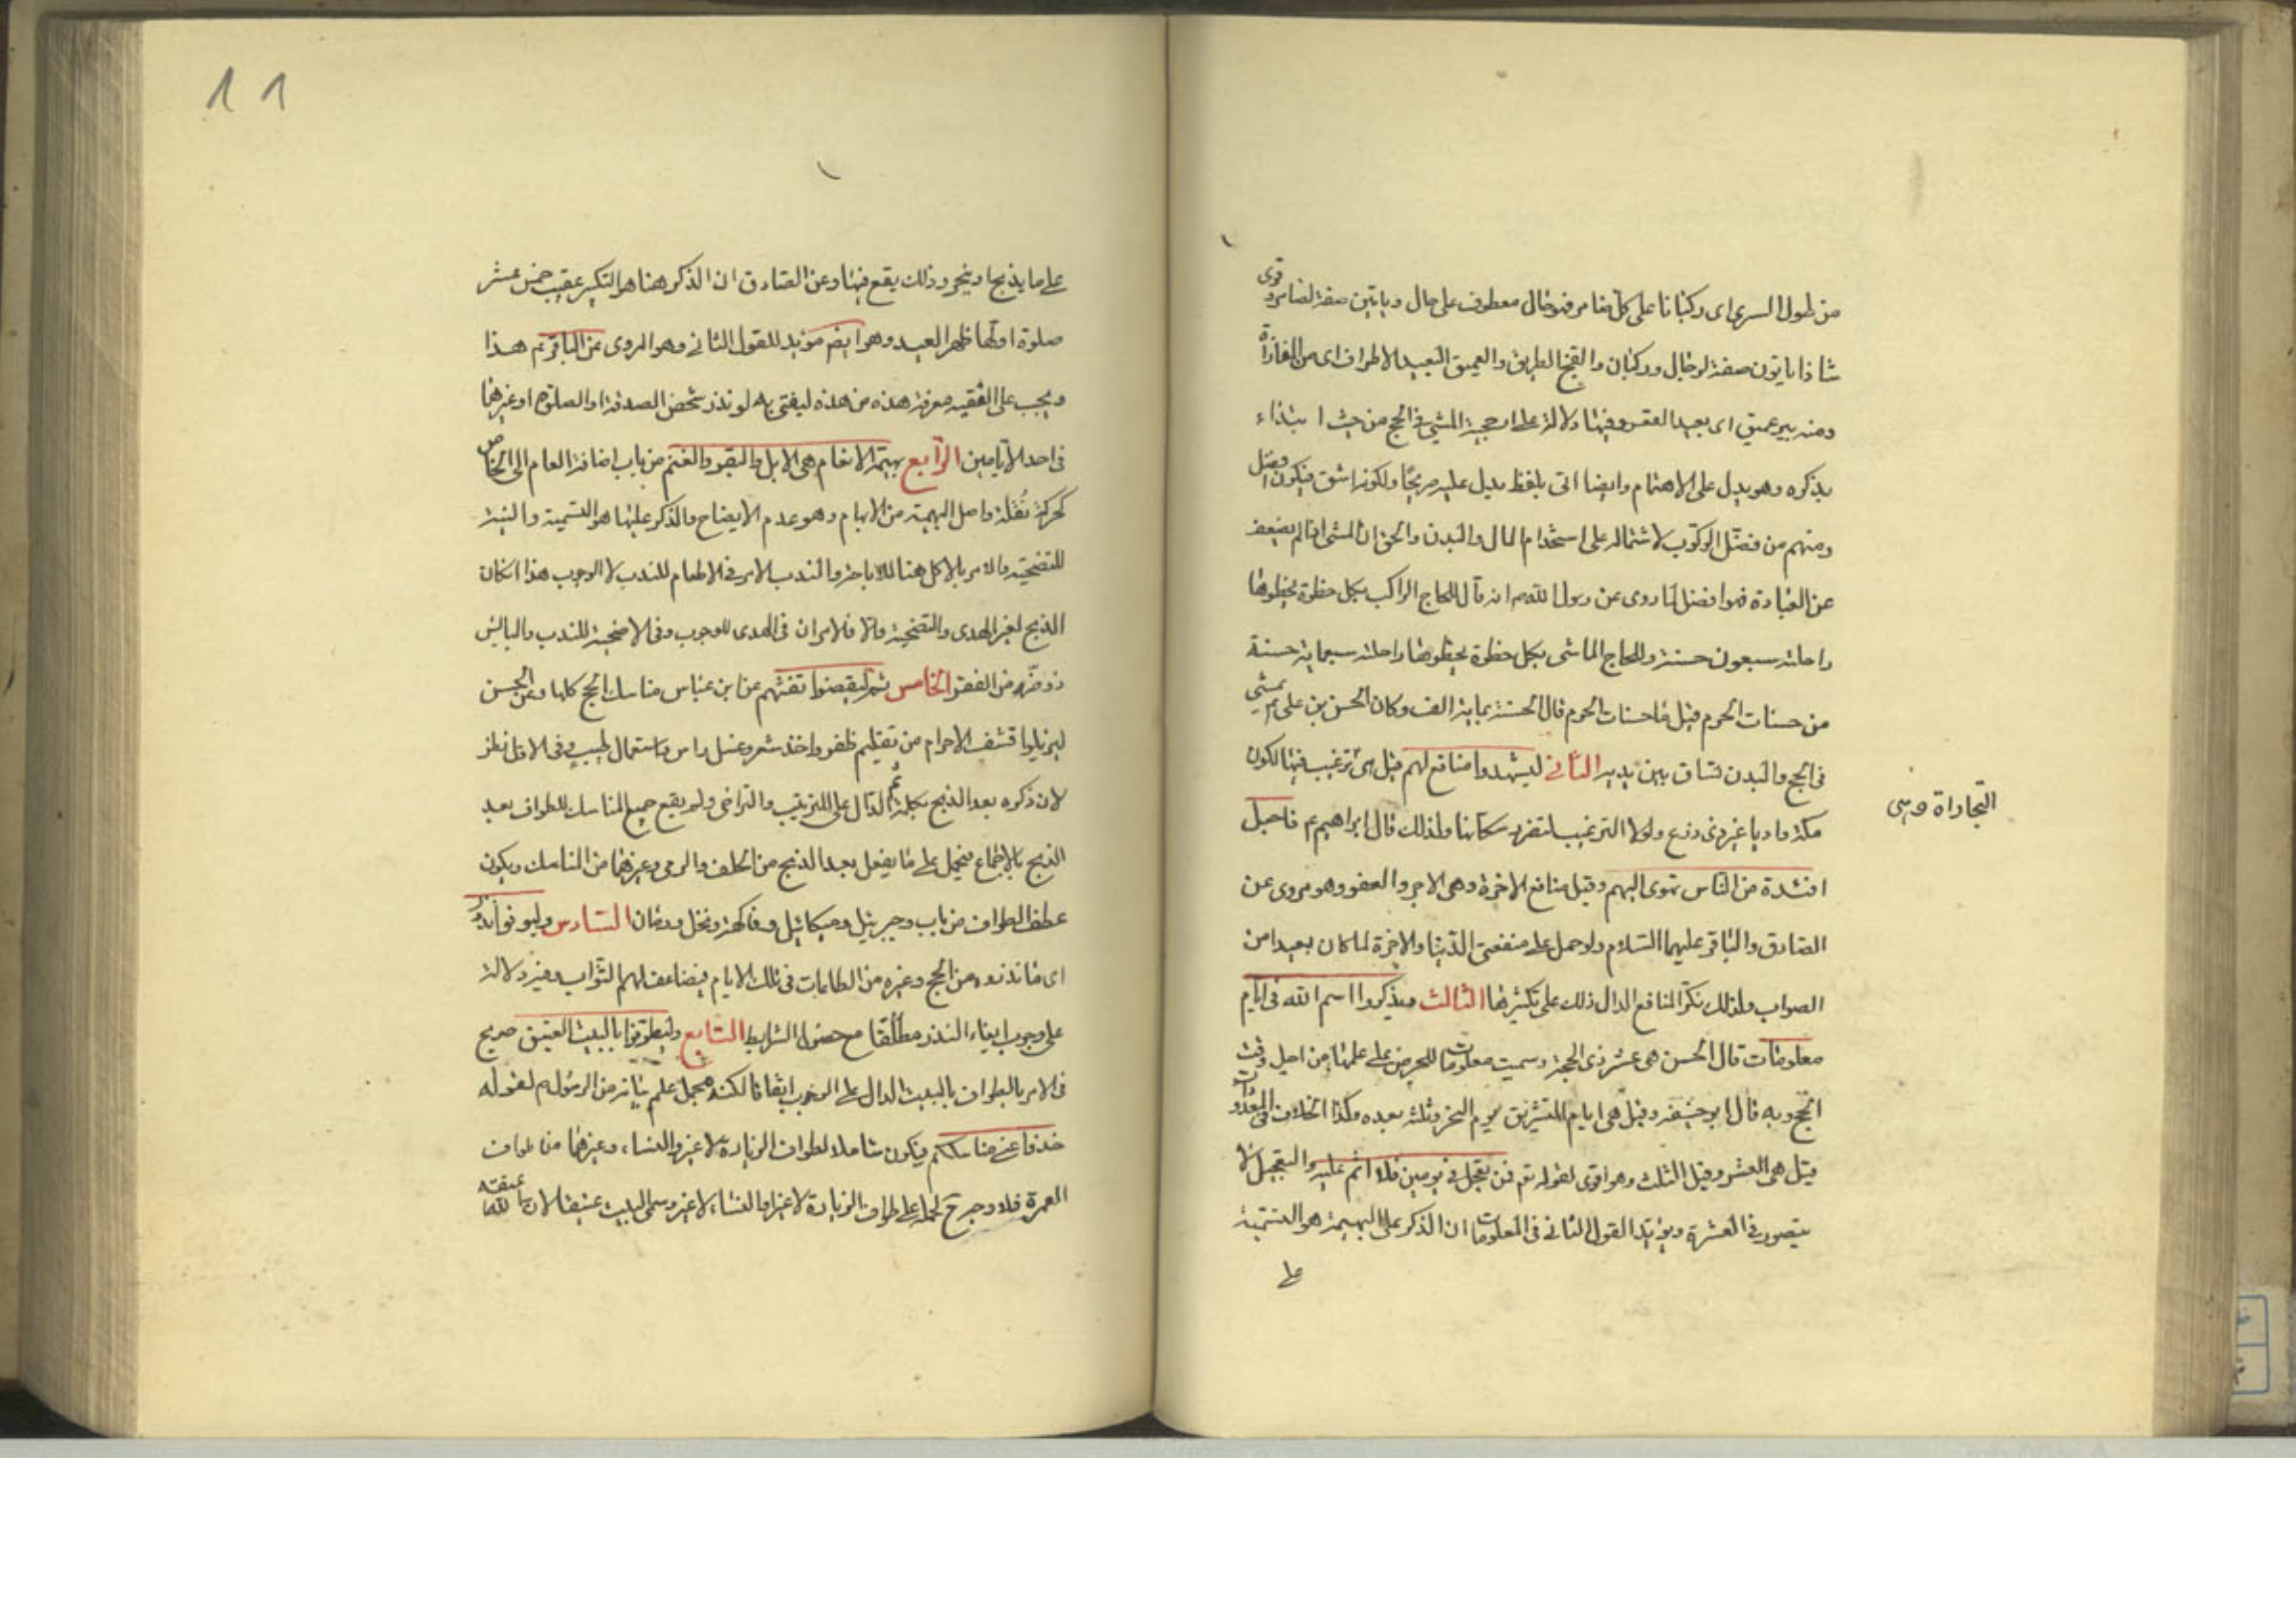 من طول السرى اى ركبانا على كل ضامر فهو حال معطوف على حال ويأتين صفة لضامر وقرى
شاذا يأتون صفة لرجال وركبان والفج الطريق والعميق البعيد الاطراف اى من المفازة
ومنه بير عميق اى بعيد القعر وفيها دلالة على ارجحية المشى فى الحج من حيث ابتداء
بذكره وهو يدل على الاهتمام وايضا اتى بلفظ يدل عليه صريحا ولكونه اشق فيكون افضل
ومنهم من فضّل الركوب لاشتماله على استخدام المال والبدن والحق ان المشى اذا لم يضعف
عن العبادة فهو افضل لما روى عن رسول الله ص انه قال للحاج الراكب بكل خطوة يخطوها
راحلته سبعون حسنة وللحاج الماشى بكل خطوة يخطوها راحلته سبعماية حسنة
من حسنات الحرم قيل ما حسنات الحرم قال الحسنة بماية الف وكان الحسن بن على ع يمشى
فى الحج والبدن تساق بين يديه الثانى ليشهدوا منافع لهم قيل هى ترغيب فيها لكون
التجاراة وهى
مكة واديا غير ذى زرع ولولا الترغيب لتضرر سكانها ولذلك قال ابراهيم ع فاجعل
افئدة من الناس تهوى اليهم وقيل منافع الاخرة وهى الاجر والعفو وهو مروى عن
الصادق والباقر عليهما السلام ولو حمل على منفعتى الدنيا والاخرة لما كان بعيدا من
الصواب ولذلك نكّر المنافع الدال ذلك على تكثيرها الثالث ويذكروا اسم الله فى ايام
معلومات قال الحسن هى عشر ذى الحجة وسميت معلومات للحرص على علمها من اجل وقت
الحج وبه قال ابو حنيفة وقيل هى ايام التشريق يوم النحر وثلثة بعده وكذا الخلاف فى المعدودات
قيل هى العشر وقيل الثلث وهو اقوى لقوله تع فمن تعجل فى يومين فلا اثم عليه والتعجيل لا
يتصور فى العشرة ويؤيد القول الثانى فى المعلومات ان الذكر على البهيمة هو التسمية
على
11
على ما يذبح او ينحر وذلك يقع فيها وعن الصادق ان الذكر هنا هو التكبير عقيب خمس عشر
صلوة اولها ظهر العيد وهو ايضم مؤيد للقول الثانى وهو المروى عن الباقر ع ثم هذا
ويجب على الفقيه معرفة هذه من هذه ليفتى به لو نذر شخص الصدقة او الصلوة او غيرها
فى احد الايامين الرابع بهيمة الانعام هى الابل والبقر والغنم من باب اضافة العام الى الخاص
كحركة نقلة واصل البهيمة من الابهام وهو عدم الايضاح والذكر عليها هو التسمية والنية
للتضحية والامر بالاكل هنا للاباحة والندب للامر فى الاطعام للندب لا الوجوب هذا ان كان
الذبح لغير الهدى والتضحية والا فالامران فى الهدى للوجوب وفى الاضحية للندب والبائس
ذو ضر من الفقر الخامس ثم ليقضوا تفثهم عن ابن عباس مناسك الحج كلها وعن الحسن
ليزيلوا قشف الاحرام من تقليم ظفر واخذ شعر وغسل راس واستعمال طيب وفى الاول نظر
لان ذكره بعد الذبح بكلمة ثم الدال على الترتيب والتراخى ولم يقع جميع المناسك للطواف بعد
الذبح بالاجماع فيحمل على ما يفعل بعد الذبح من الحلف والرمى وغيرها من المناسك ويكون
عطف الطواف من باب وجبريل وميكائيل وفاكهة ونخل ورمان السادس وليوفوا نذورهم
اى ما نذروه من الحج وغيره من الطاعات فى تلك الايام فيضاعف لهم الثواب وفيه دلالة
على وجوب ايفاء النذر مطلقا مع حصول الشرايط السابع وليطوفوا بالبيت العتيق صريح
فى الامر بالطواف بالبيت الدال على الوجوب اتفاقا لكنه مجمل علم بيانه من الرسول ص لقوله
خذوا عنى مناسككم فيكون شاملا لطواف الزيارة لا غير والنساء وغيرهما من طواف
العمرة فلا وجه ح لحمله على طواف الزيارة لا غير او النساء لا غير وسمى البيت عتيقا لان الله عتقه